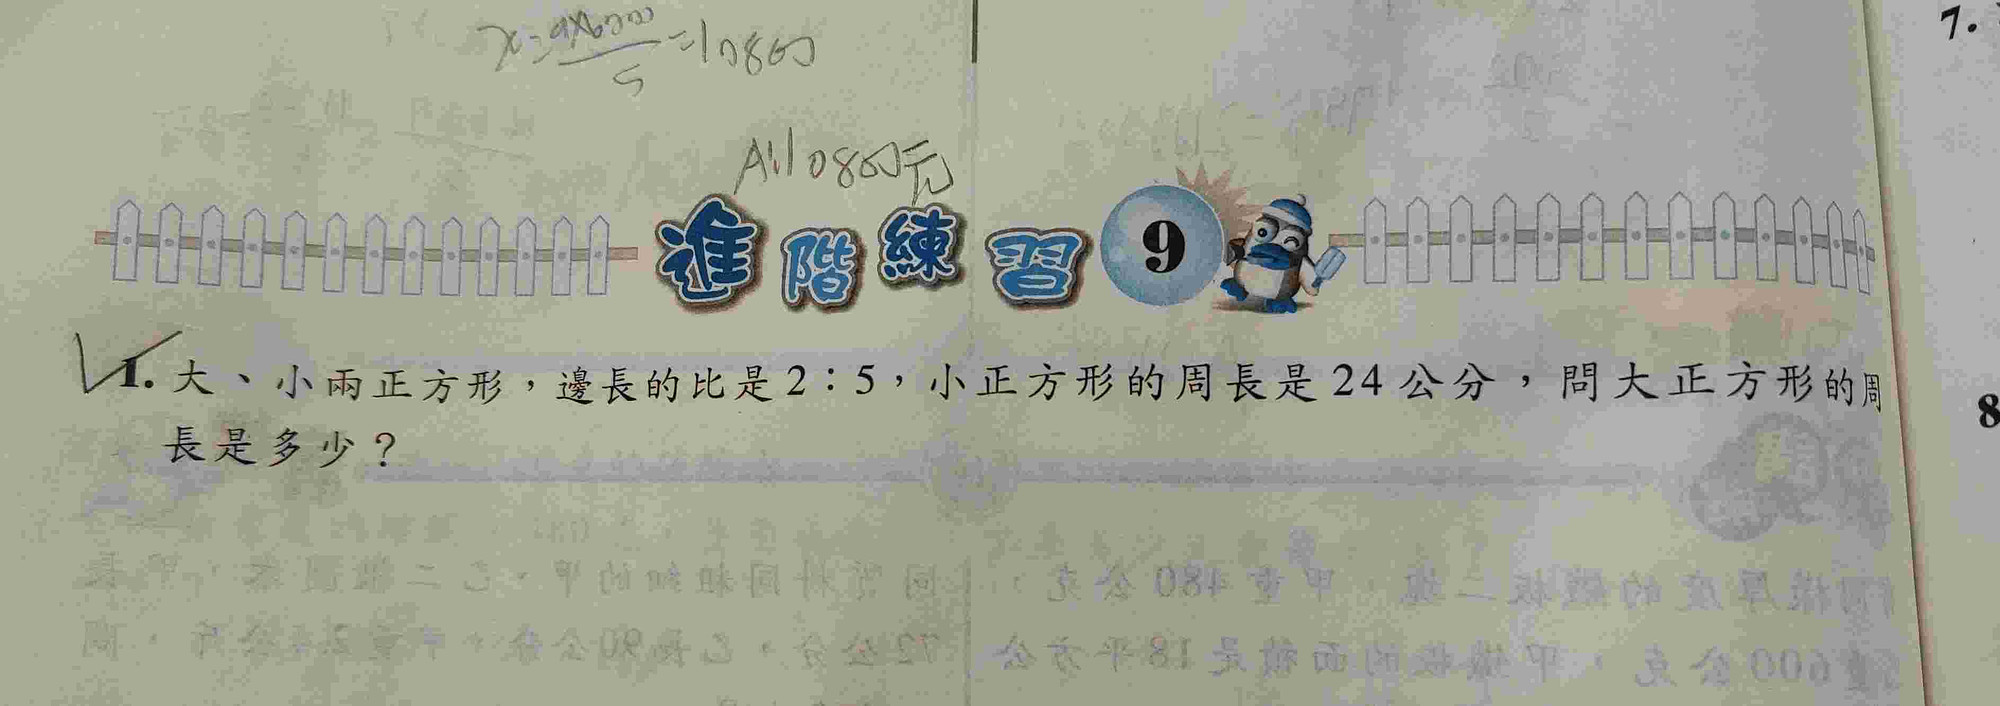 x=9x6000/5=10800
A:10800元
進階練習9
7.
1. 大、小兩正方形，邊長的比是2：5，小正方形的周長是24公分，問大正方形的周
長是多少？
8